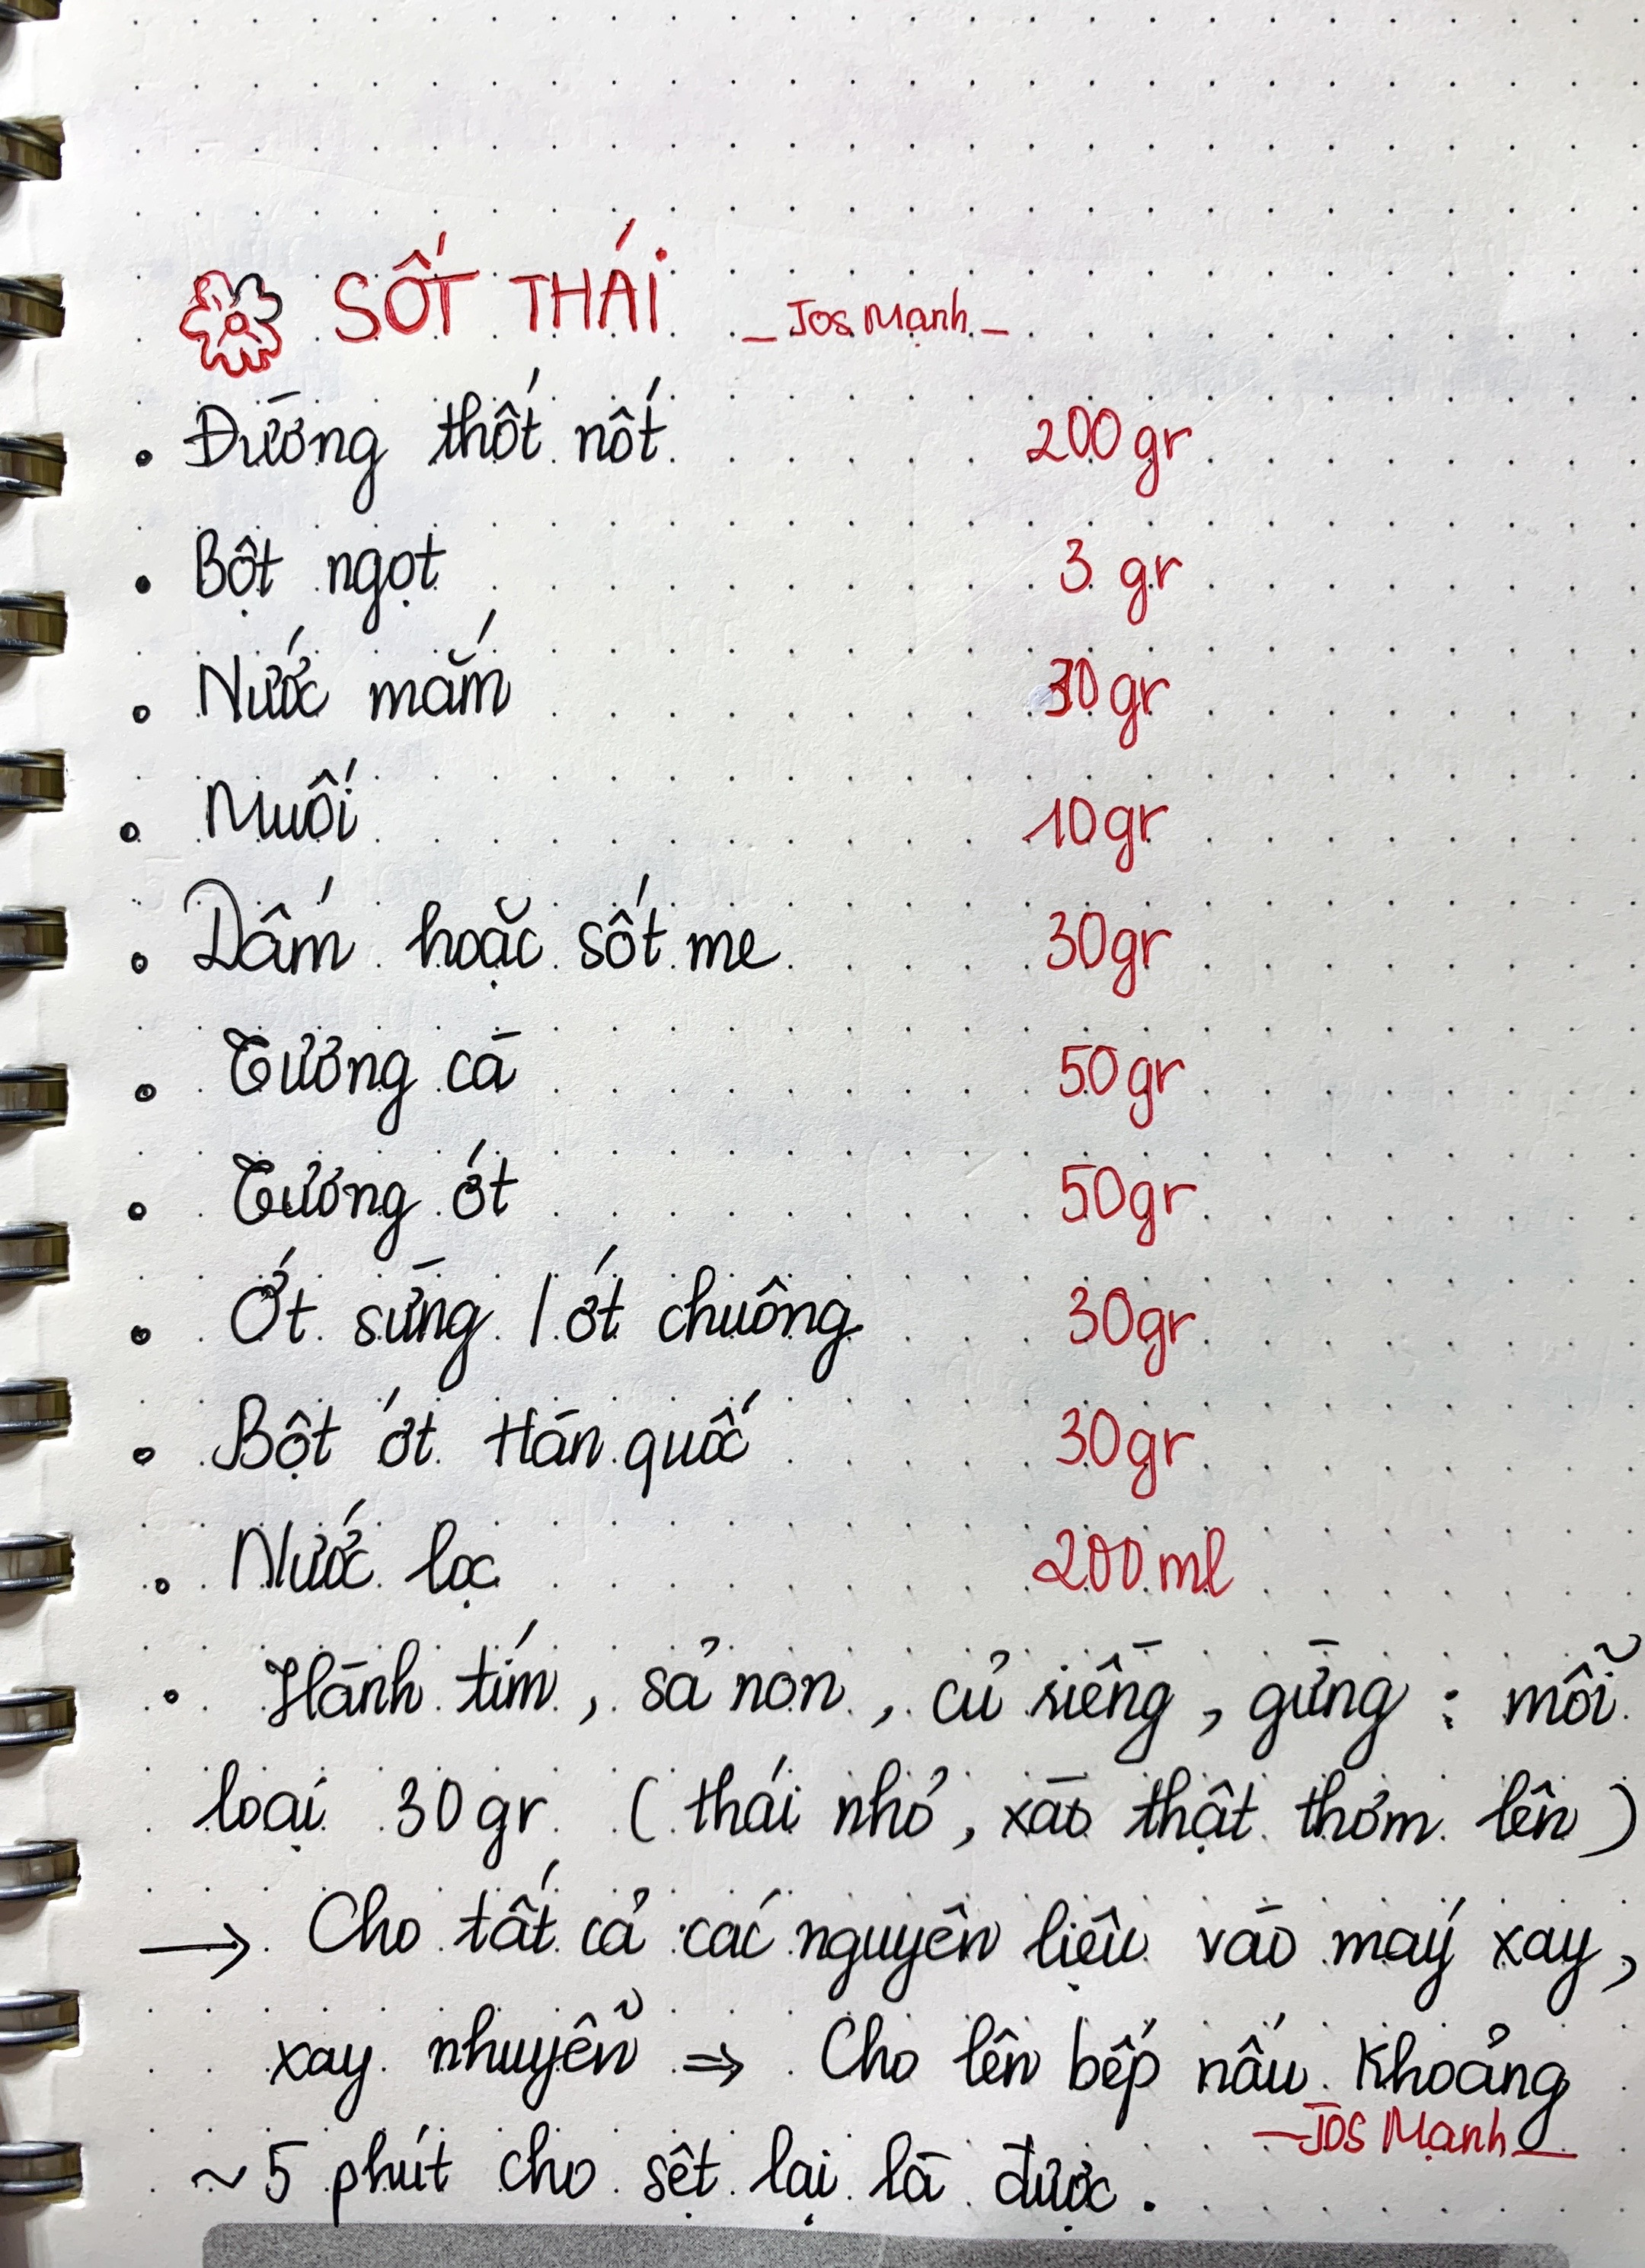 SỐT THÁI _Jos Mạnh_
• Đường thốt nốt 200gr
• Bột ngọt 3 gr
• Nước mắm 30gr
• Muối 10gr
• Dấm hoặc sốt me 30gr
• Tương cà 50gr
• Tương ớt 50gr
• Ớt sừng / ớt chuông 30gr
• Bột ớt Hàn quốc 30gr
• Nước lọc 200ml
• Hành tím, sả non, củ riềng, gừng : mỗi
loại 30gr (thái nhỏ, xào thật thơm lên)
→ Cho tất cả các nguyên liệu vào máy xay,
xay nhuyễn ⇒ Cho lên bếp nấu khoảng
~ 5 phút cho sệt lại là được.
—JOS Mạnh—